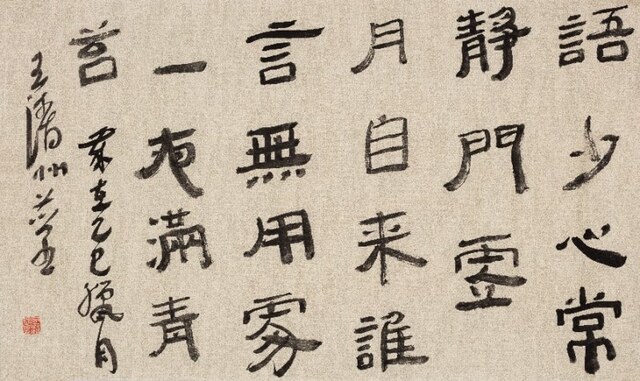 語少心常
靜門虛
月自来誰
言無用處
一夜滿青
苔 歲在乙巳臘月
王清州